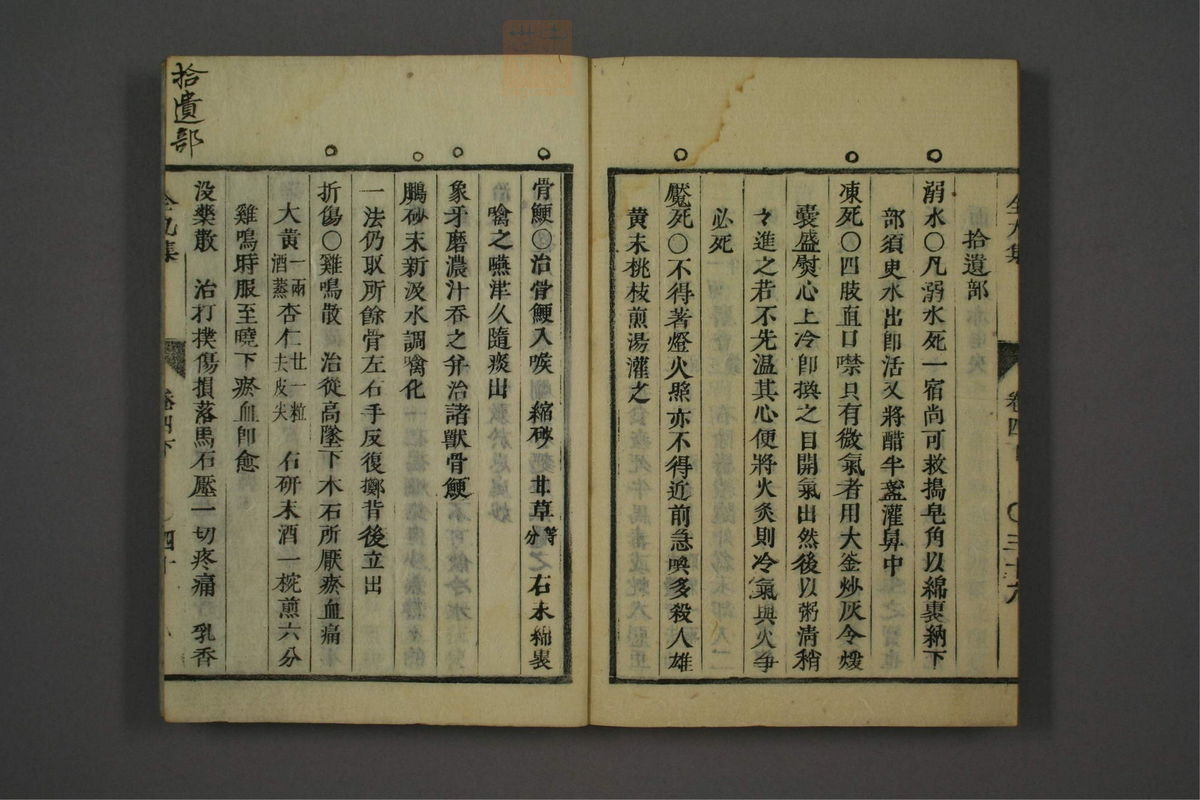 拾遺部
溺水〇凡溺水死一宿尚可救搗皂角以綿裹納下
部須臾水出卽活又將醋半盞灌鼻中
凍死〇四肢直口噤只有微氣者用大釜炒灰令煖
囊盛熨心上冷卽換之目開氣出然後以粥淸稍
々進之若不先温其心便將火灸則冷氣與火爭
必死
魘死〇不得著燈火照亦不得近前急喚多殺人雄
黄末桃枝煎湯灌之
骨鯁〇治骨鯁入喉 縮砂 甘草等分 右末綿裹
噙之嚥津久隨痰出
象牙磨濃汁呑之幷治諸獸骨鯁
鵬砂末新汲水調噙化
一法仍取所餘骨左右手反復擲背後立出
折傷〇雞鳴散 治從高墜下木石所厭瘀血痛
大黄一兩酒蒸 杏仁廿一粒去皮尖 右研末酒一椀煎六分
雞鳴時服至曉下瘀血卽愈
没藥散 治打撲傷損落馬石壓一切疼痛 乳香
全九集
卷四下
拾遺部